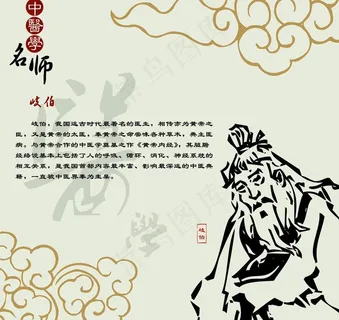 中醫學
名师
岐伯
岐伯，我国远古时代最著名的医生，相传亦为黄帝之
医，又是黄帝的太医，奉黄帝之命尝味各种草木，典主医
病，与黄帝合作的中医学奠基之作《黄帝内经》，其脏腑
经络说基本上包括了人的呼吸、循环、消化、神经系统的
相互关系，是我国首部内容最丰富、影响最深远的中医典
籍，一直被中医界奉为圭臬。
岐伯
學